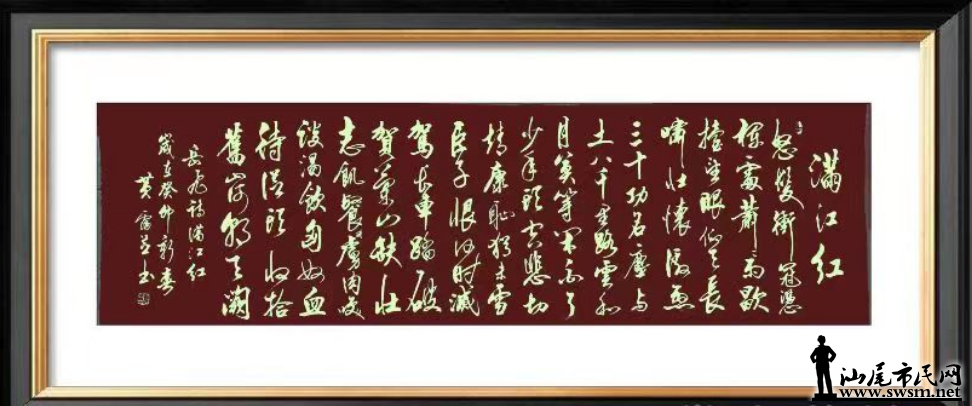 滿江红
怒髮衝冠憑
欄處蕭雨歇
擡望眼仰天長
嘯壯懷激烈
三十功名塵与
土八千里路雲和
月莫等閒白了
少年頭空悲切
靖康恥猶未雪
臣子恨何时滅
駕長車踏破
賀蘭山缺壯
志飢餐虜肉笑
談渴飲匈奴血
待從頭收拾
舊山河朝天闕
岳飛詞滿江红
歲在癸卯新春
黄
书
汕尾市民网
www.swsm.net